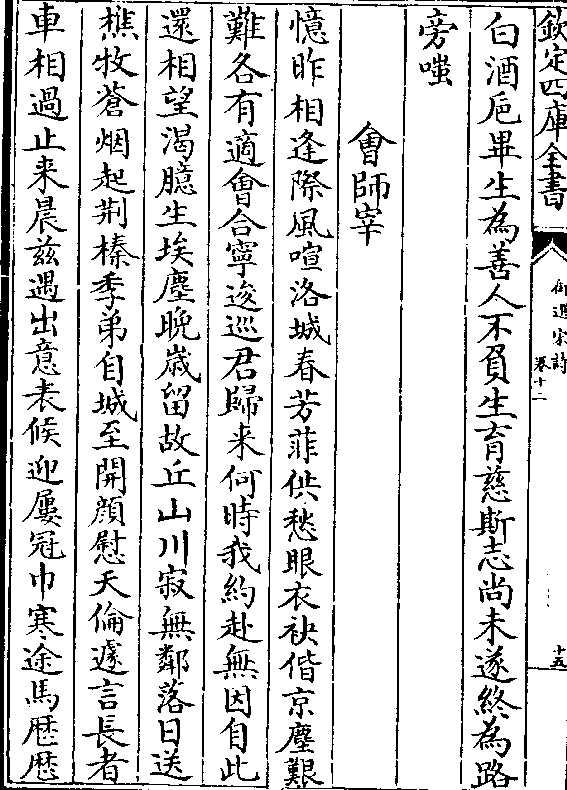 欽定四庫全書
御選宋詩
卷十二
十五
白酒卮畢生為善人不負生育慈斯志尚未遂終為路
旁嗤
會師宰
憶昨相逢際風喧洛城春芳菲供愁眼衣袂偕京塵艱
難各有適會合寧逡巡君歸来何時我約赴無因自此
還相望渴臆生埃塵晚歳留故丘山川寂無鄰落日送
樵牧蒼烟起荆榛季弟自城至開顔慰天倫遽言長者
車相過止来晨兹遇出意表候迎屢冠巾寒途馬厯厯